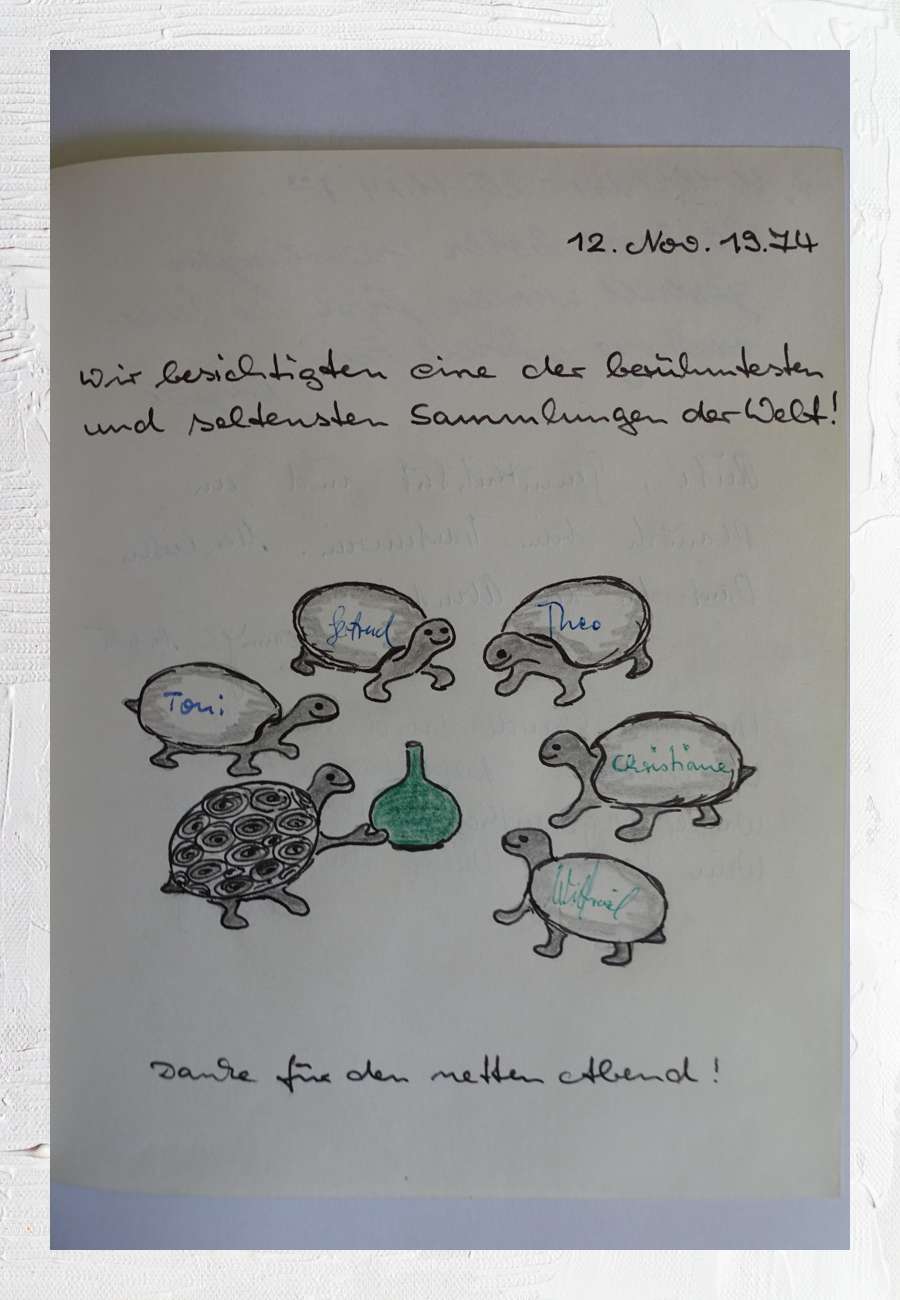 12. Nov. 19.74
Wir besichtigten eine der berühmtesten
und seltensten Sammlungen der Welt!
Gertrud
Theo
Toni
Christiane
Wilfried
Danke für den netten Abend!